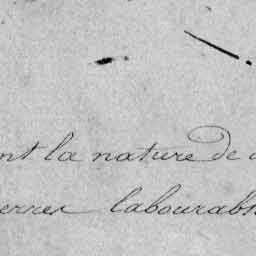 nt la nature de
erres labourab